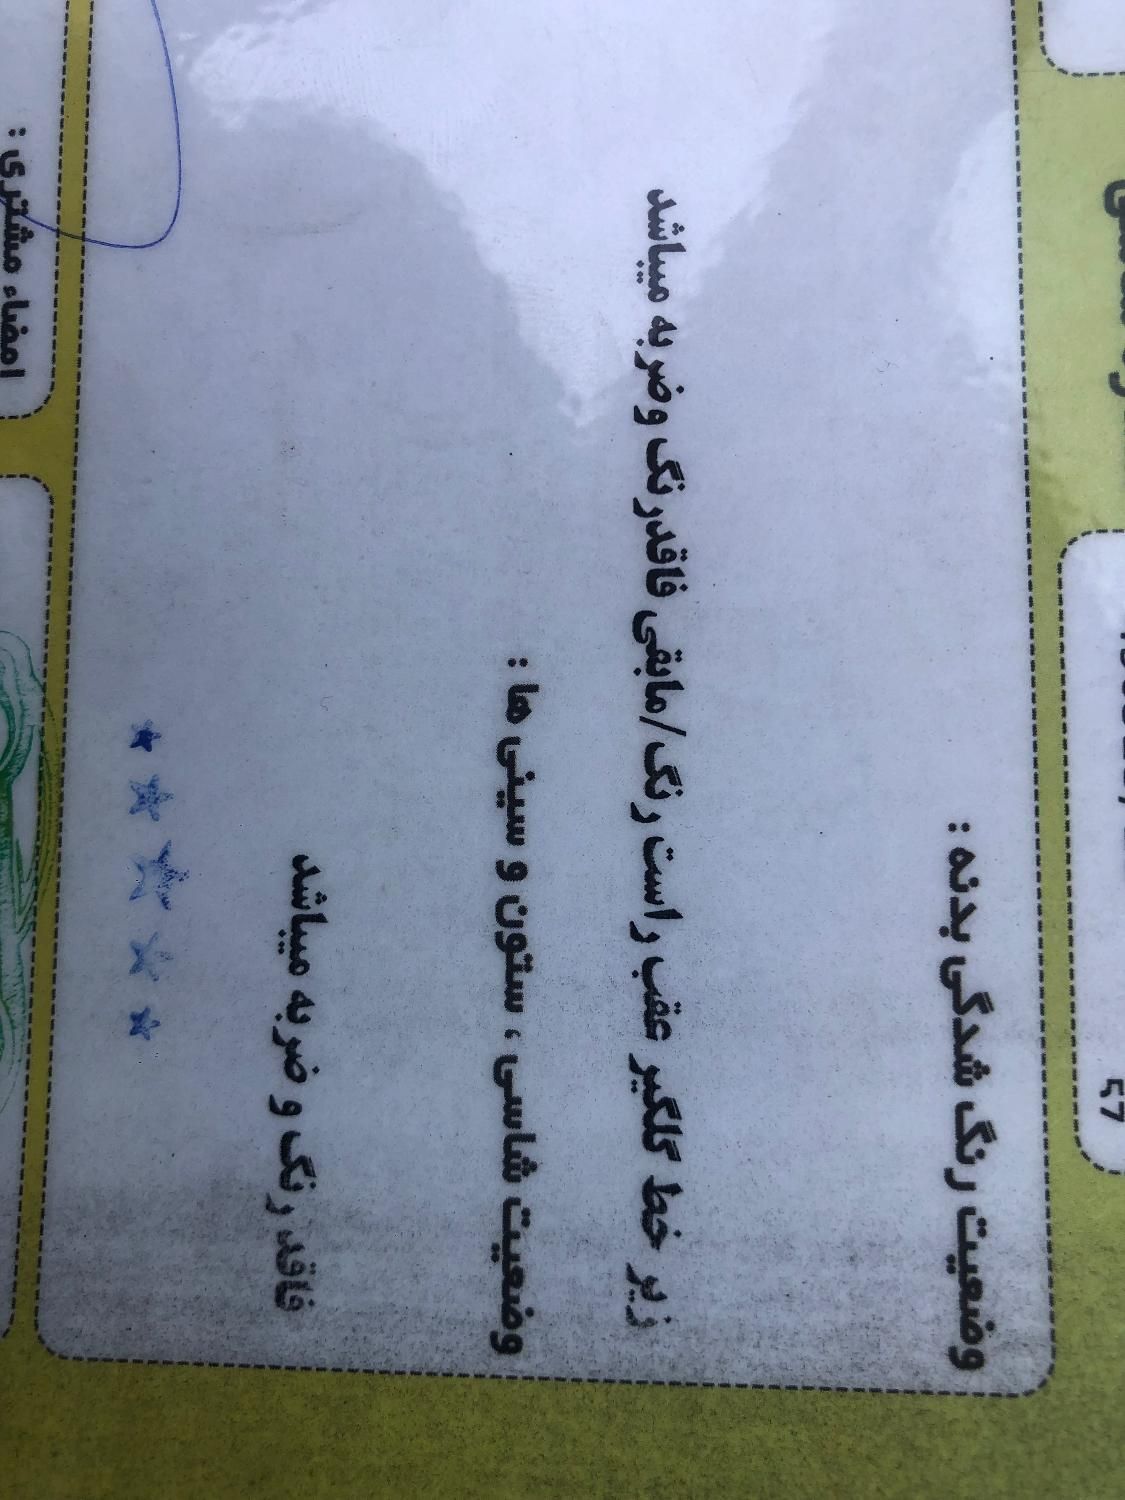 وضعیت رنگ شدگی بدنه :
زیر خط گلگیر عقب راست رنگ/مابقی فاقدرنگ وضربه میباشد
وضعیت شاسی ، ستون و سینی ها :
فاقد رنگ و ضربه میباشد
امضاء مشتری :